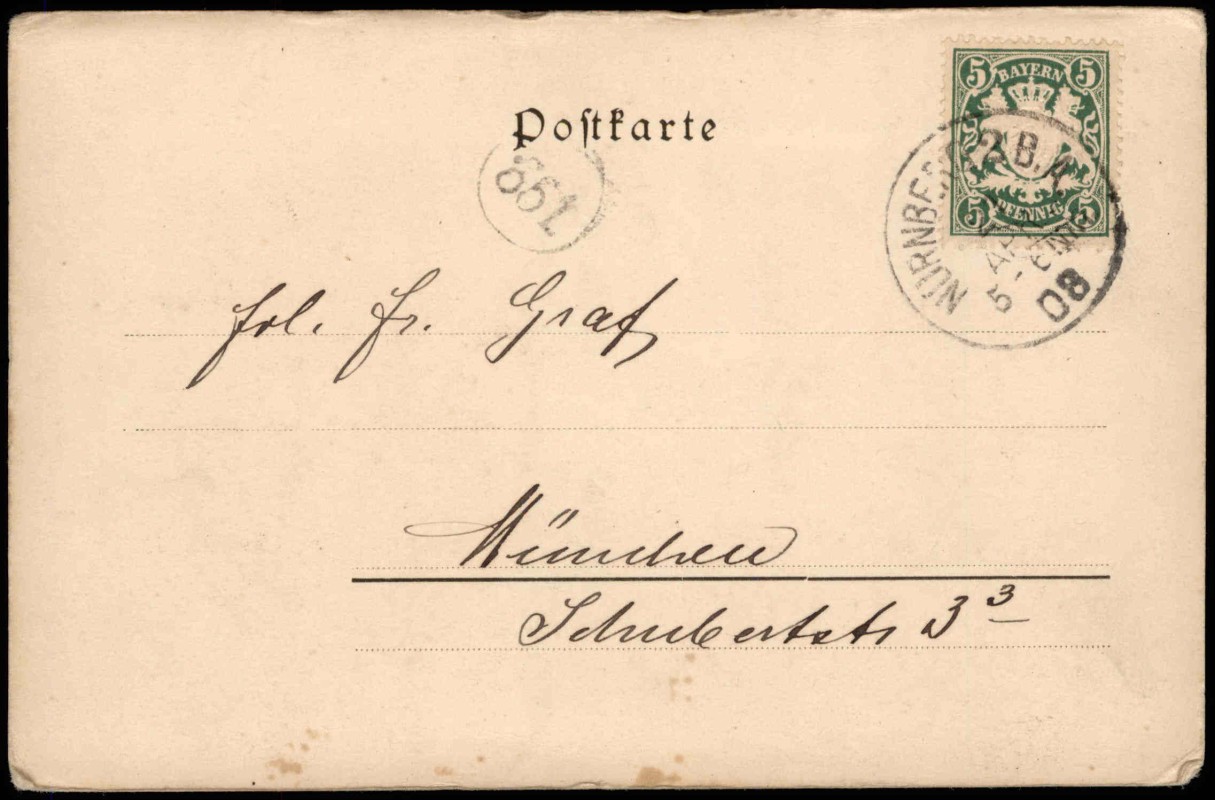 Postkarte
5 BAYERN 5
5 PFENNIG 5
NÜRNBERG 2 B.A.
5-6NM
08
Graf
München
Schubertstr 3 3